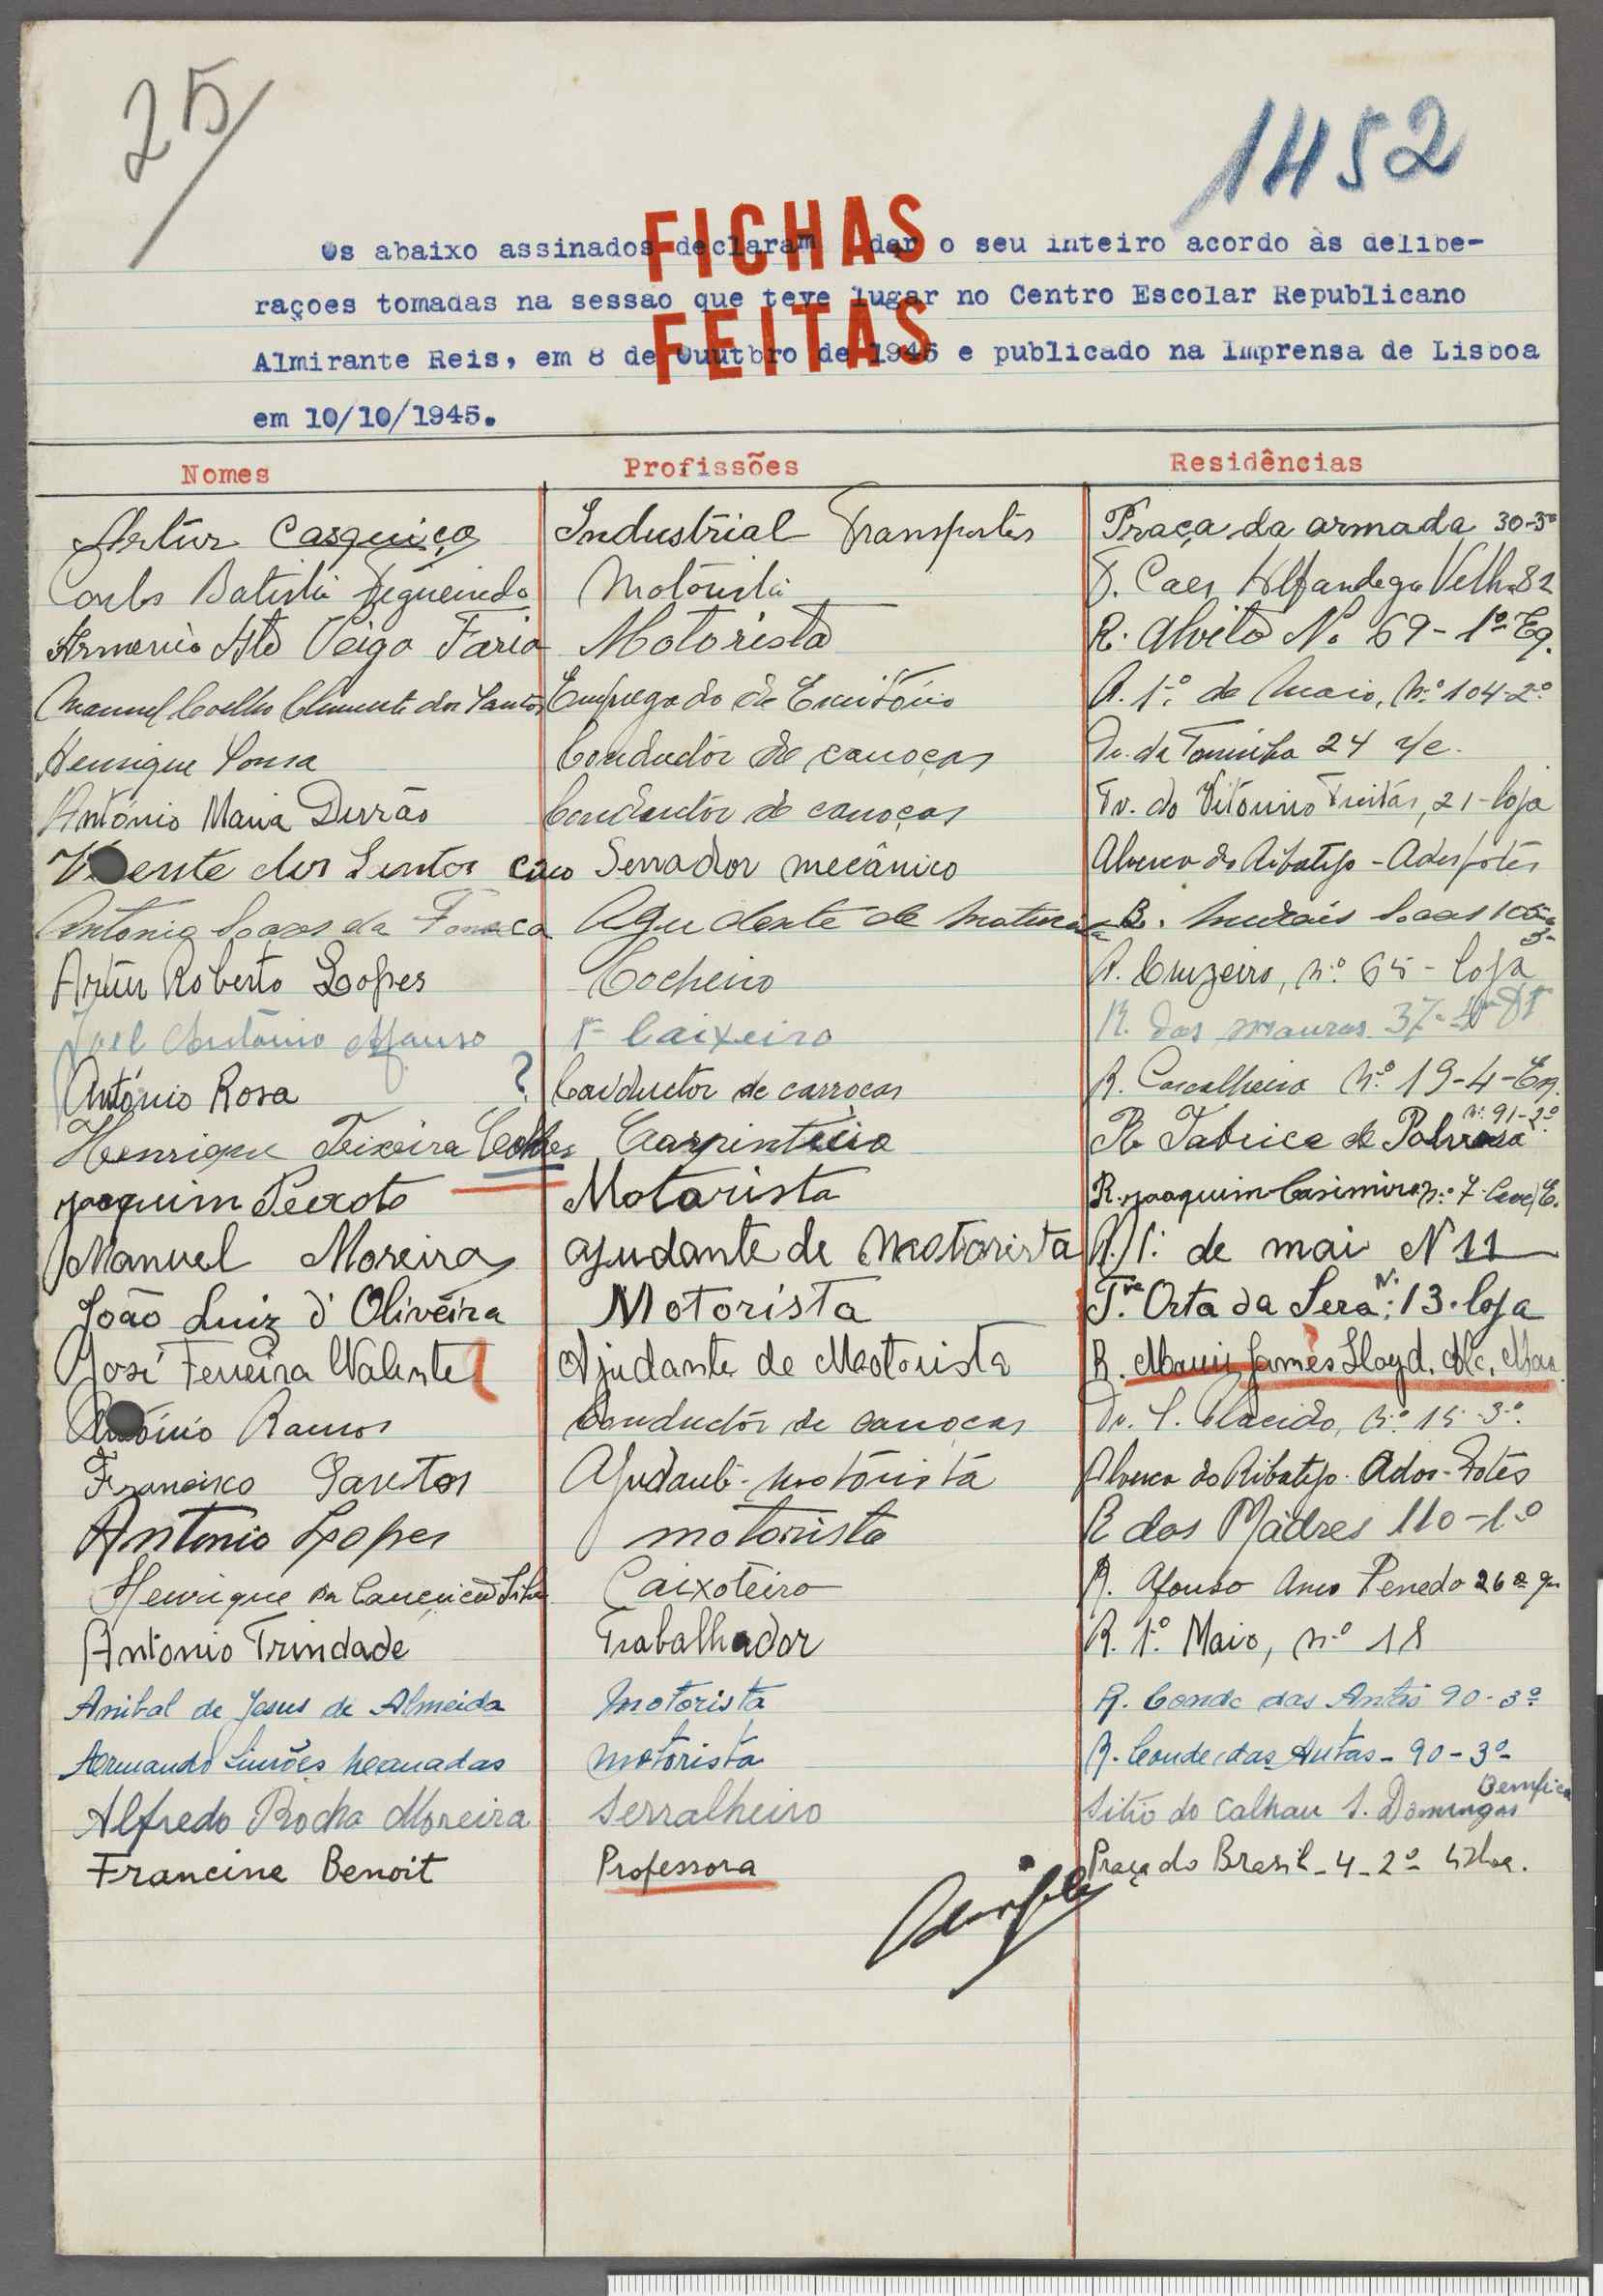 25/
1452
FICHAS
FEITAS
Os abaixo assinados declaram dar o seu inteiro acordo às delibe-
rações tomadas na sessao que teve lugar no Centro Escolar Republicano
Almirante Reis, em 8 de Ouutbro de 1945 e publicado na Imprensa de Lisboa
em 10/10/1945.
Nomes Profissões Residências
Artur Casquiço Industrial Transportes Praça da armada 30-3º
Carlos Batista Figueiredo Motorista Caes Alfandega Velha 82
Armenio Veiga Faria Motorista R. Alvito No 69-1º Eq.
Manuel Coelho Clemente dos Santos Empregado de Escritório R. 1º de Maio, nº 104-2º
Henrique Sousa Condutor de carroças Tv. da 24 r/c.
António Maria Durrão Condutor de carroças Tv. do Vitorino Freitas, 21-loja
dos Santos Serrador mecânico Alverca do Ribatejo - Adespotes
Antonio da Fonseca R. 105
Artur Roberto Lopes Cocheiro R. Cruzeiro, nº 65-loja
António Afonso Caixeiro R. das 37
António Rosa ? Conductor de carroças R. Cascalheira Nº 19-4-Eq.
Henrique Teixeira Carpinteiro R. Fabrica de Polvora nº 91-2º
Joaquim Peixoto Motorista R. Joaquim Casimiro nº 7
Manuel Moreira ajudante de Motorista R. 1º de mai N 11
João Luiz d'Oliveira Motorista Tra. Orta da Sera Nº: 13. loja
José Ferreira Valente Ajudante de Motorista R. James Lloyd.
Ramos Conductor de carroças Tv. S. Placido, nº 15-3º
Francisco Santos Ajudante motorista Alverca do Ribatejo.
Antonio Lopes motorista R das Madres 110-1º
Henrique da Conceição Silva Caixoteiro R. Afonso Penedo 26
Antonio Trindade Trabalhador R. 1º Maio, nº 18
Anibal de Jesus de Almeida motorista R. Conde das Antas 90-3º
Armando Simões motorista R. Conde das Antas - 90-3º
Alfredo Rocha Moreira Serralheiro Sitio do Calhau S. Domingos Benfica
Francine Benoit Professora Praça do Brasil-4-2º Lisboa.